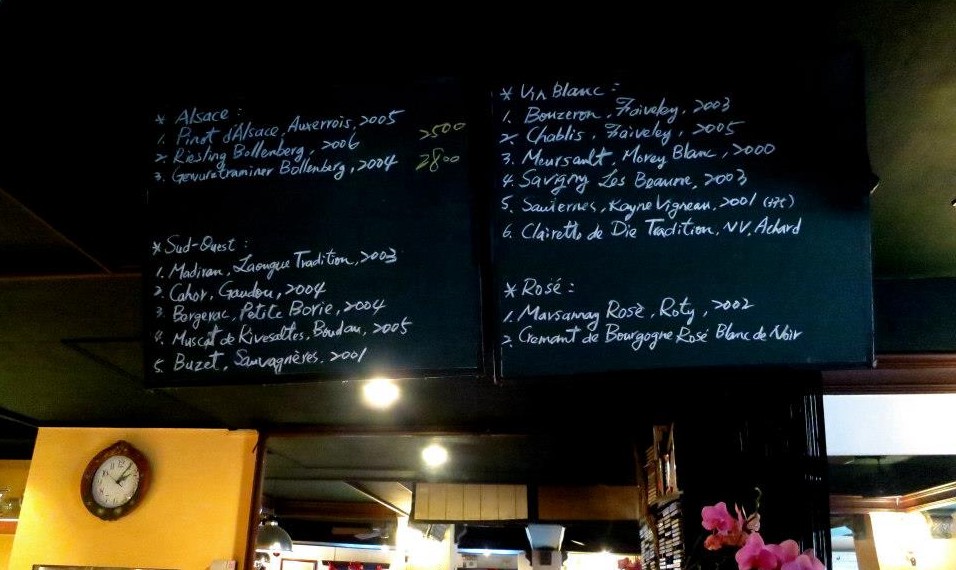 * Alsace :
1. Pinot d'Alsace, Auxerrois, 2005 2500
2. Riesling Bollenberg, 2006 2800
3. Gewurztraminer Bollenberg, 2004
* Sud-Ouest :
1. Madiran, Laougue Tradition, 2003
2. Cahor, Gaudou, 2004
3. Bergerac, Petite Borie, 2004
4. Muscat de Rivesaltes, Boudau, 2005
5. Buzet, Sauvagnères. 2001
* Vin Blanc :
1. Bouzeron, Faiveley, 2003
2. Chablis, Faiveley, 2005
3. Meursault, Morey Blanc, 2000
4. Savigny Les Beaune, 2003
5. Sauternes, Rayne Vigneau, 2001 (375)
6. Clairette de Die Tradition, NV, Achard
* Rosé :
1. Marsannay Rosè, Roty, 2002
2. Cremant de Bourgogne Rosé Blanc de Noir